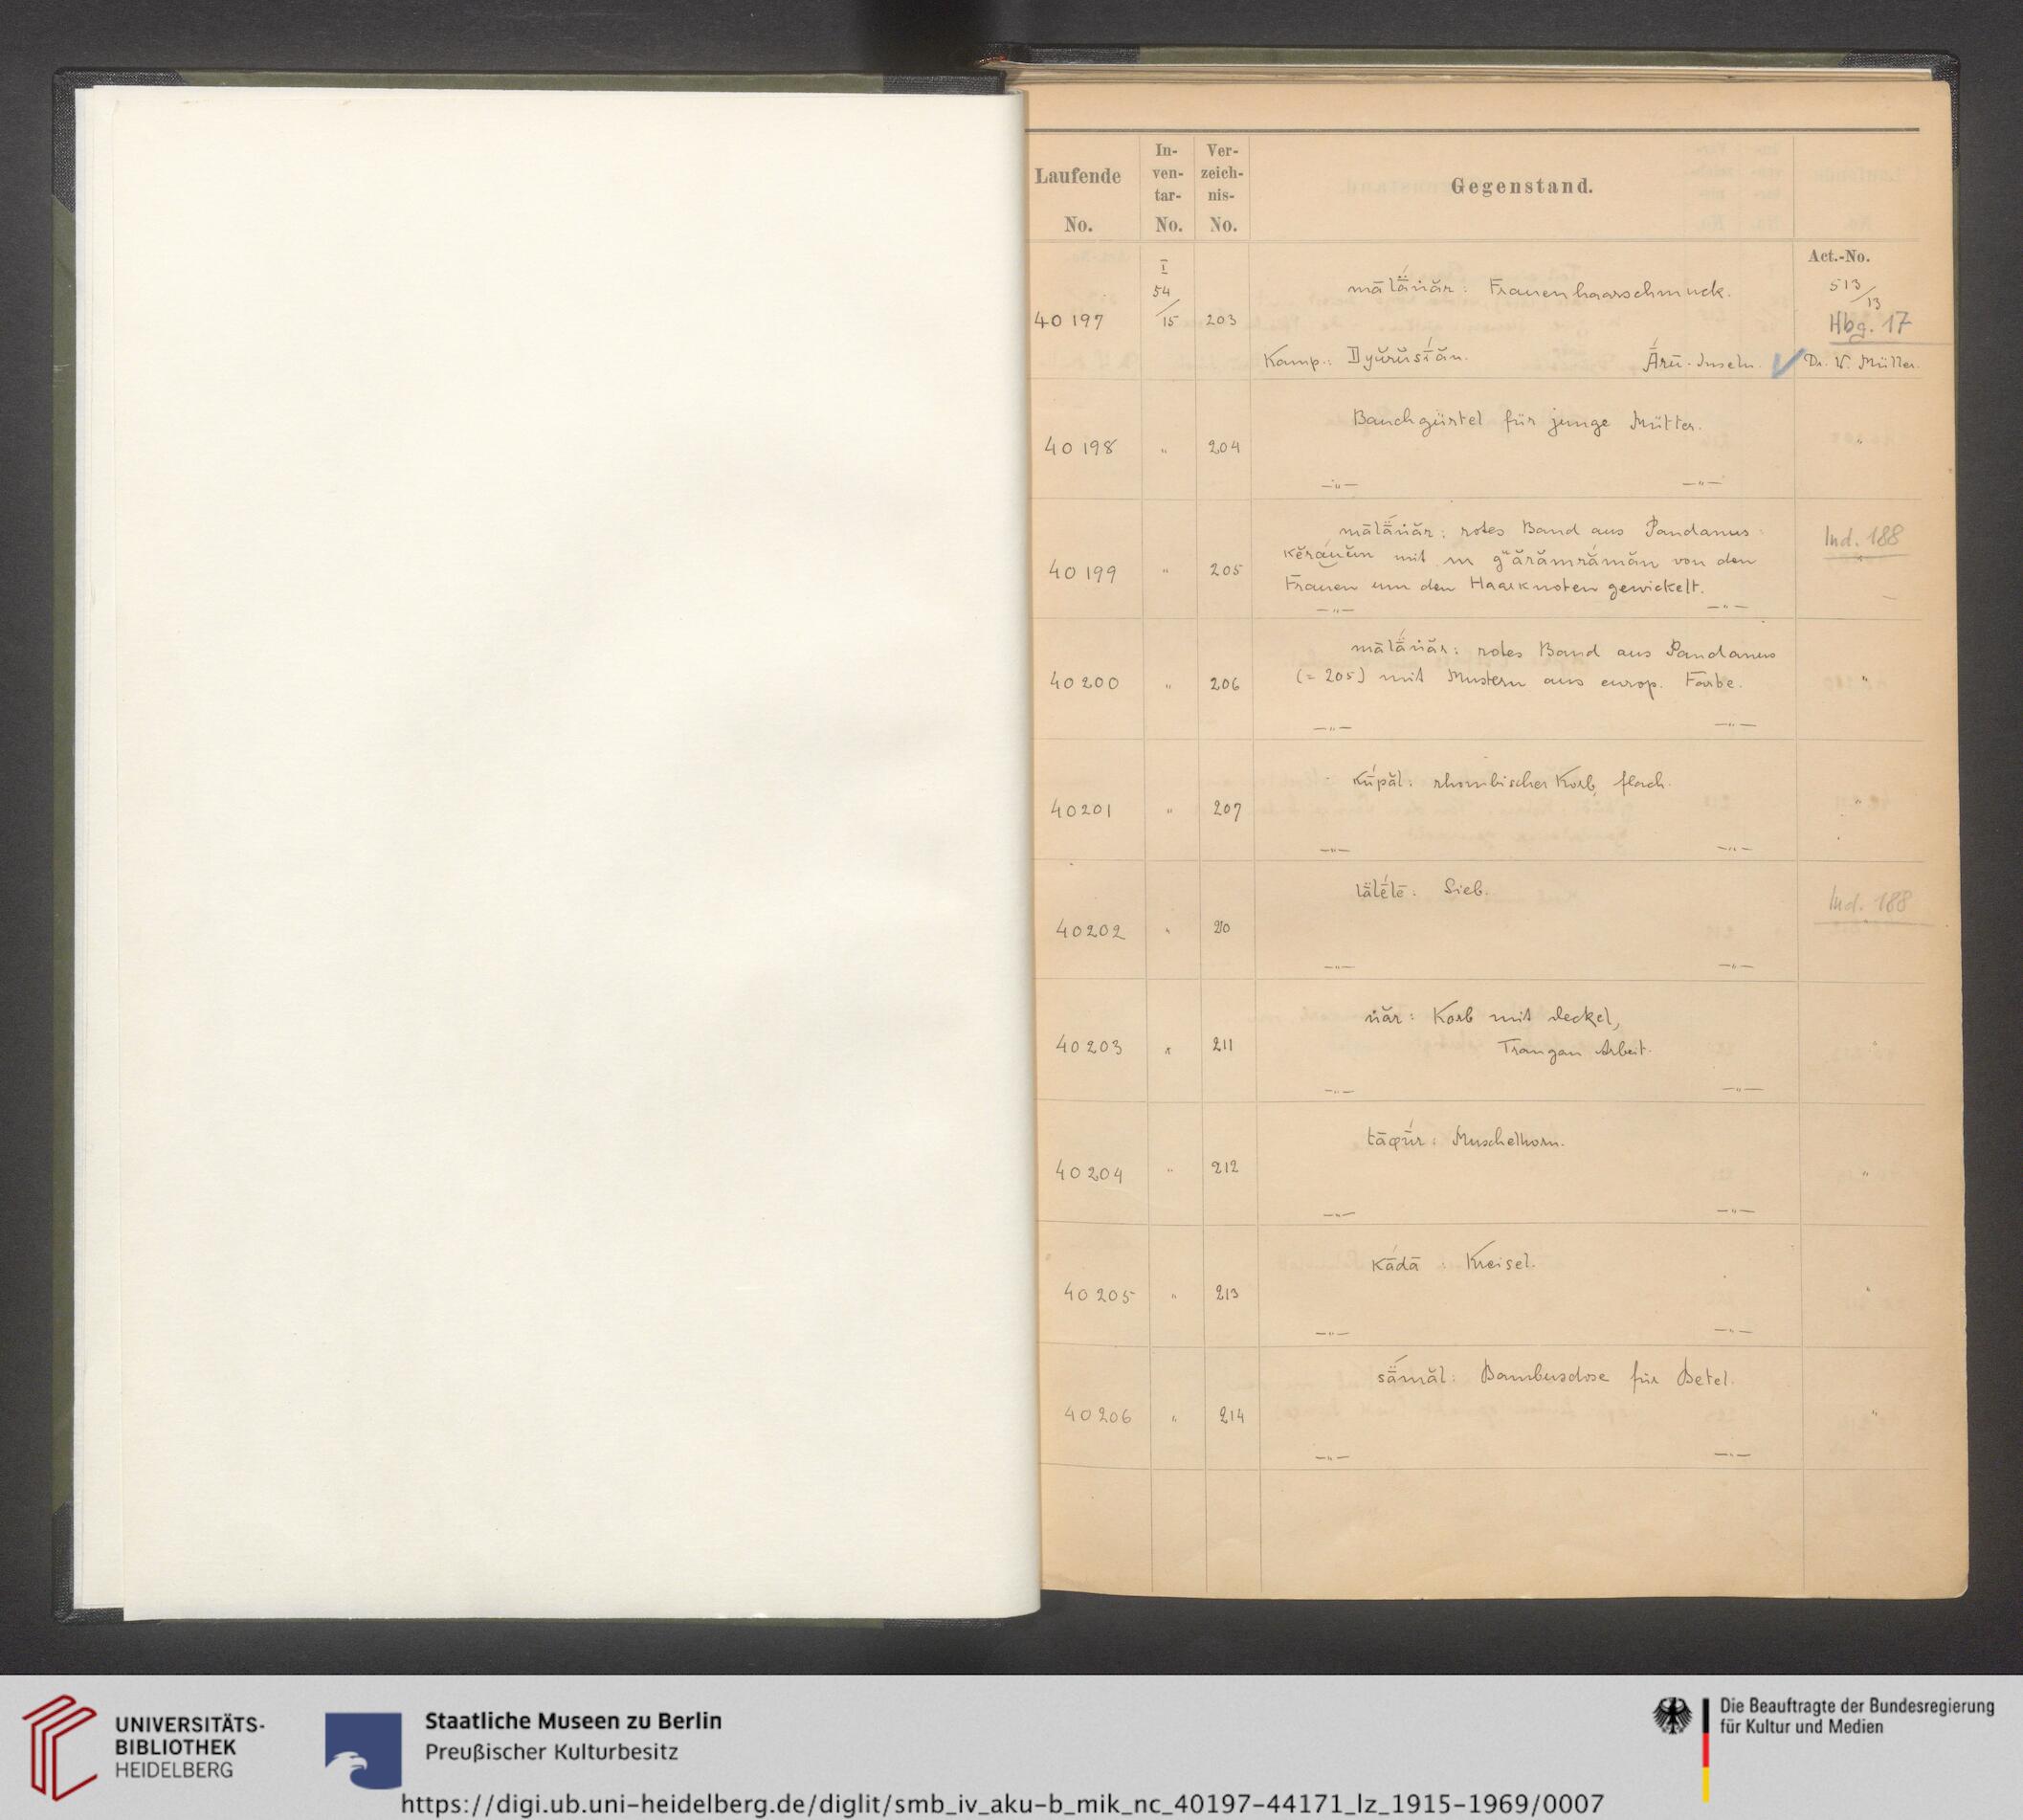 Laufende No.
In-ven-tar- No.
Ver-zeich-nis- No.
Gegenstand.
Act.-No.
I
54
/15
513/13
Hbg. 17
mālā̈́ṅăr: Frauenhaarschmuck.
40 197 203
Kamp.: Dyŭrŭsī́ăn. Ā́rū-Inseln. Dr. W. Müller.
Bauchgürtel für junge Mütter.
40 198 " 204 "
—"— —"—
mālā̈́ṅăr: rotes Band aus Pandanus
mit von den
Frauen um den Haarknoten gewickelt.
40 199 " 205 "
Ind. 188
—"— —"—
mālā̈́ṅăr: rotes Band aus Pandanus
(= 205) mit Mustern aus europ. Farbe.
40 200 " 206 "
—"— —"—
kū́păl: rhombischer Korb, flach.
40201 " 207 "
—"— —"—
lälḗlē: Sieb.
40202 "
Ind. 188
—"— —"—
ṅăr: Korb mit Deckel,
Trangan Arbeit.
40203 " 211 "
—"— —"—
tāφū́r: Muschelhorn.
40204 " 212 "
—"— —"—
kā́dā: Kreisel.
40 205 " 213 "
—"— —"—
sā̈́măl: Bambusdose für Betel.
40206 " 214 "
—"— —"—
UNIVERSITÄTS-
BIBLIOTHEK
HEIDELBERG
Staatliche Museen zu Berlin
Preußischer Kulturbesitz
Die Beauftragte der Bundesregierung
für Kultur und Medien
https://digi.ub.uni-heidelberg.de/diglit/smb_iv_aku-b_mik_nc_40197-44171_lz_1915-1969/0007